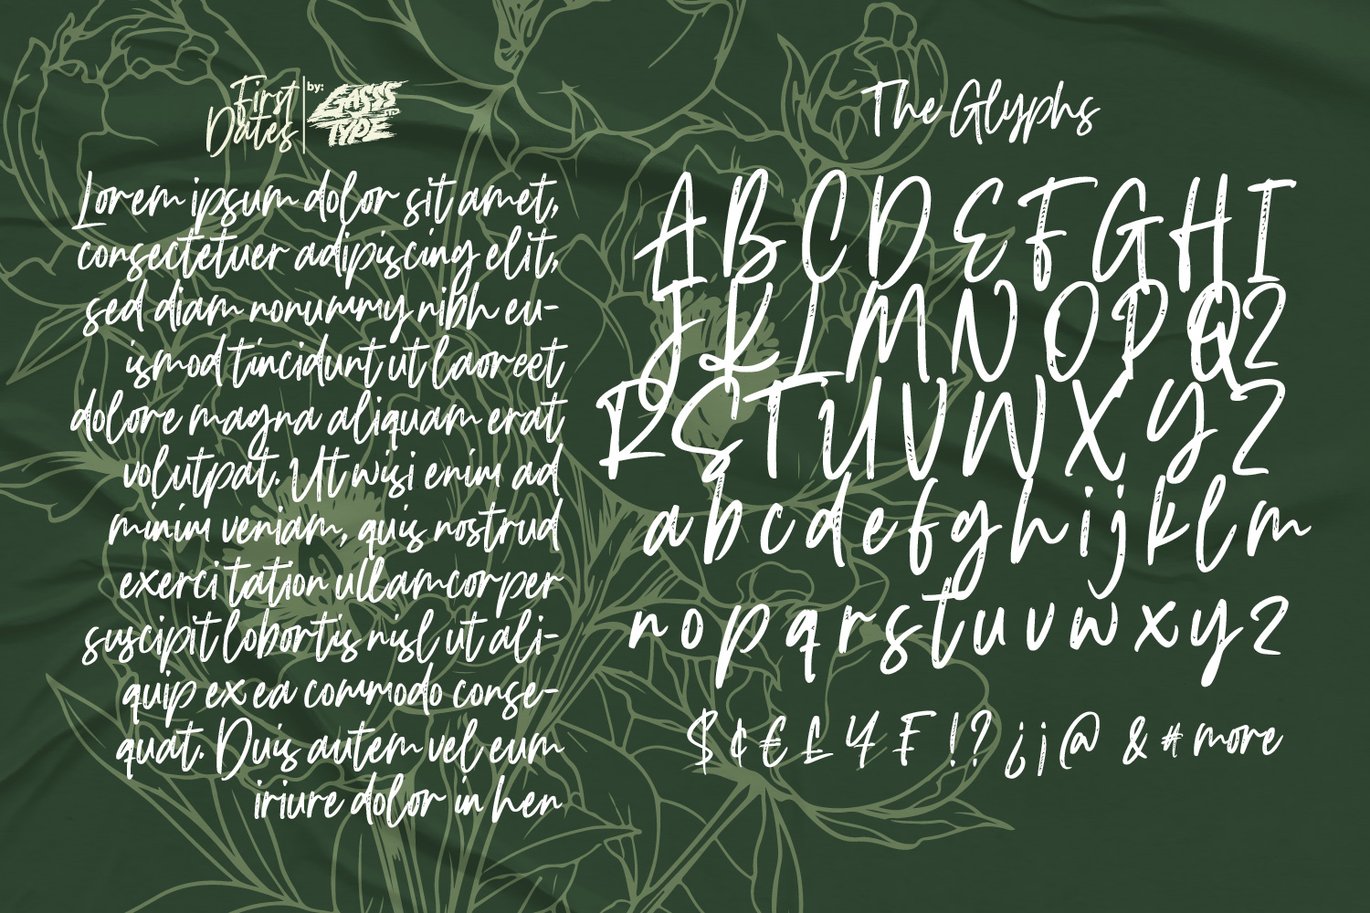 First
Dates
by:
GASSS
TYPE
STD
Lorem ipsum dolor sit amet,
consectetuer adipiscing elit,
sed diam nonummy nibh eu-
ismod tincidunt ut laoreet
dolore magna aliquam erat
volutpat. Ut wisi enim ad
minim veniam, quis nostrud
exerci tation ullamcorper
suscipit lobortis nisl ut ali-
quip ex ea commodo conse-
quat. Duis autem vel eum
iriure dolor in hen
The Glyphs
A B C D E F G H I
J K L M N O P Q Z
R S T U V W X Y Z
a b c d e f g h i j k l m
n o p q r s t u v w x y z
$ ¢ € £ ¥ ₣ ! ? ¿ ¡ @ & # more